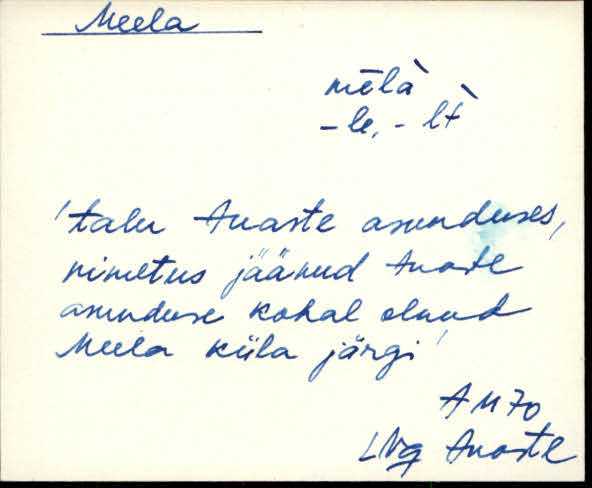 Meela
mēlà
- le, - lt
'talu Anaste asunduses,
nimetus jäänud Anaste
asunduse kohal olnud
Meela küla järgi'
A M 70
LNg Anaste